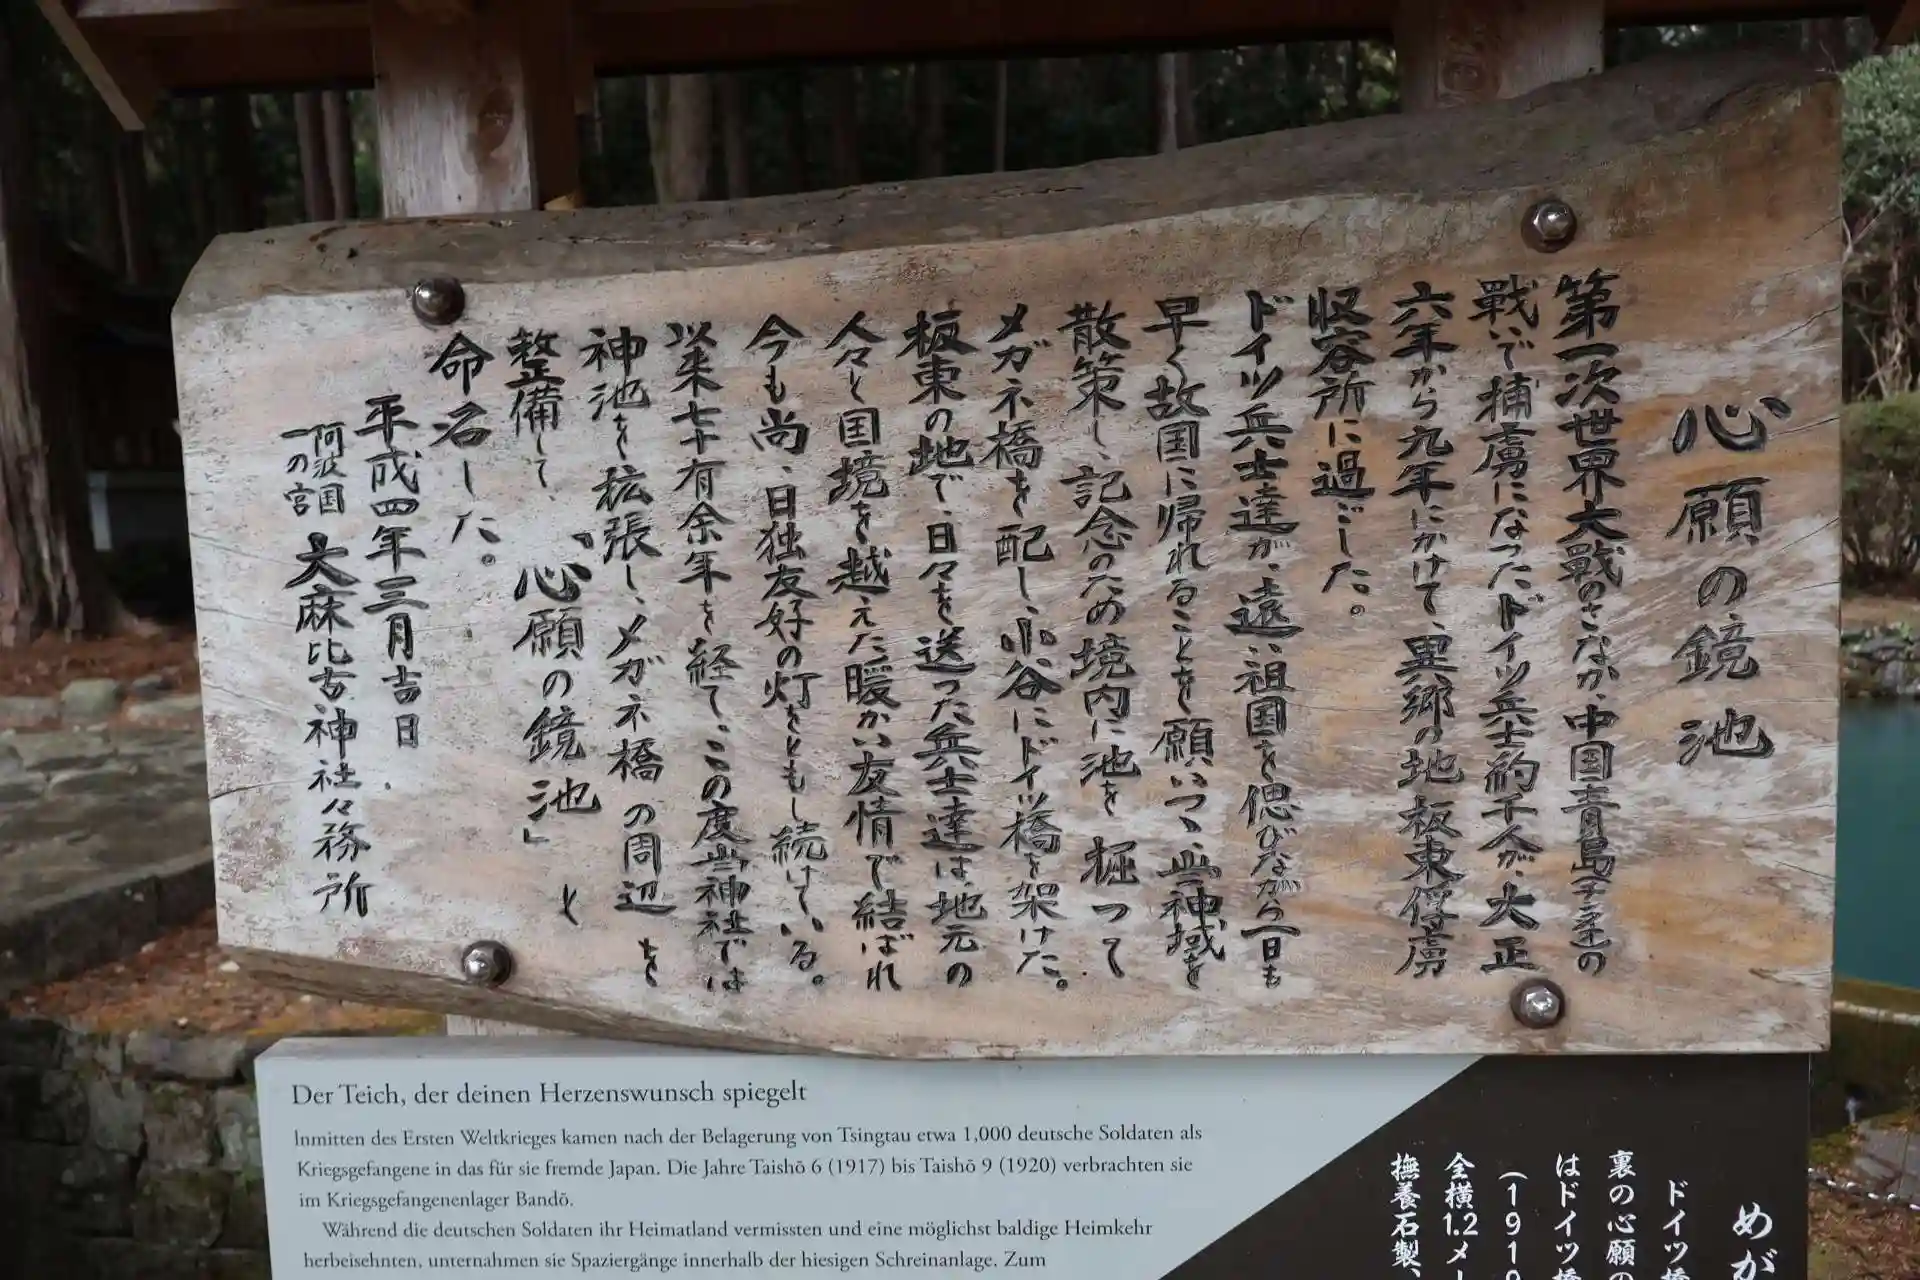 心願の鏡池
第一次世界大戦のさなか、中国青島(チンタオ)の
戦いで捕虜になったドイツ兵士約千人が、大正
六年から九年にかけて、異郷の地板東俘虜
収容所に過ごした。
ドイツ兵士達が、遠い祖国を偲びながら一日も
早く故国に帰れることを願いつつ、当神域を
散策し、記念のため境内に池を掘って
メガネ橋を配し、小谷にドイツ橋を架けた。
板東の地で、日々を送った兵士達は、地元の
人々と国境を越えた暖かい友情で結ばれ
今も尚、日独友好の灯をともし続けている。
以来七十有余年を経て、この度当神社では
神池を拡張し、メガネ橋の周辺を
整備して、「心願の鏡池」と
命名した。
平成四年三月吉日
阿波国
一の宮 大麻比古神社々務所
Der Teich, der deinen Herzenswunsch spiegelt
Inmitten des Ersten Weltkrieges kamen nach der Belagerung von Tsingtau etwa 1,000 deutsche Soldaten als
Kriegsgefangene in das für sie fremde Japan. Die Jahre Taishō 6 (1917) bis Taishō 9 (1920) verbrachten sie
im Kriegsgefangenenlager Bandō.
Während die deutschen Soldaten ihr Heimatland vermissten und eine möglichst baldige Heimkehr
herbeisehnten, unternahmen sie Spaziergänge innerhalb der hiesigen Schreinanlage. Zum
めが
ドイツ橋
裏の心願の
はドイツ橋
(1919
全横1.2メー
撫養石製、